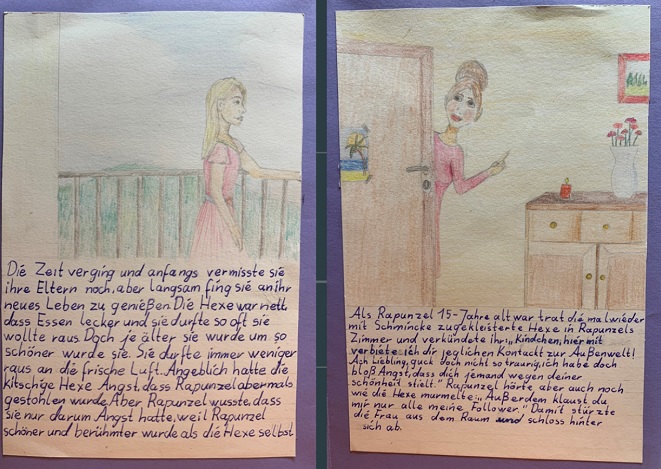 Die Zeit verging und anfangs vermisste sie
ihre Eltern noch, aber langsam fing sie an ihr
neues Leben zu genießen. Die Hexe war nett,
dass Essen lecker und sie durfte so oft sie
wollte raus. Doch je älter sie wurde um so
schöner wurde sie. Sie durfte immer weniger
raus an die frische Luft. Angeblich hatte die
kitschige Hexe Angst, dass Rapunzel abermals
gestohlen wurde. Aber Rapunzel wusste, dass
sie nur darum Angst hatte, weil Rapunzel
schöner und berühmter wurde als die Hexe selbst.
Als Rapunzel 15-Jahre alt war trat die mal wieder
mit Schmincke zugekleisterte Hexe in Rapunzels
Zimmer und verkündete ihr: „Kindchen, hier mit
verbiete ich dir jeglichen Kontackt zur Außenwelt!
Ach Liebling, guck doch nicht so traurig, ich habe doch
bloß Angst, dass dich jemand wegen deiner
schönheit stielt." Rapunzel hörte aber auch noch
wie die Hexe murmelte: „Außerdem klaust du
mir nur alle meine Follower." Damit stürzte
die Frau aus dem Raum und schloss hinter
sich ab.